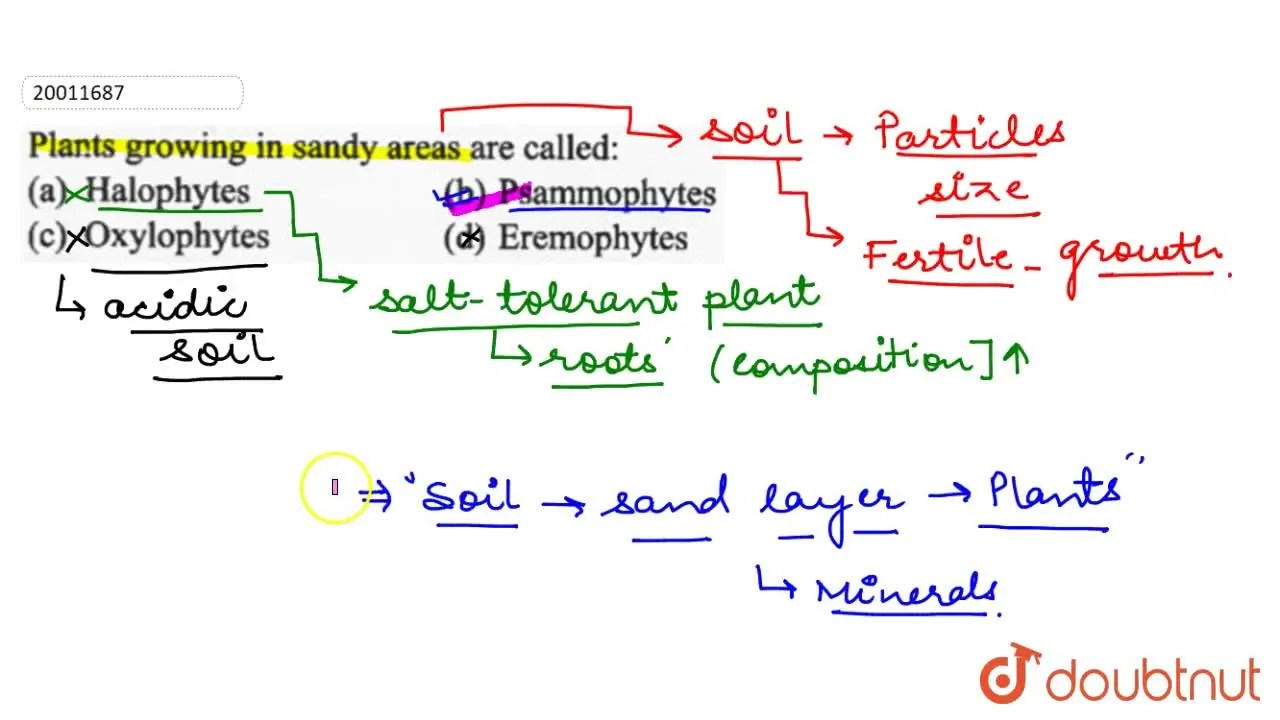 20011687
Plants growing in sandy areas are called:
(a) Halophytes
(b) Psammophytes
(c) Oxylophytes
(d) Eremophytes
soil → Particles
size
Fertile - growth.
salt-tolerant plant
roots' (composition] ↑
acidic
soil
⇒ "Soil → sand layer → Plants"
Minerals.
doubtnut